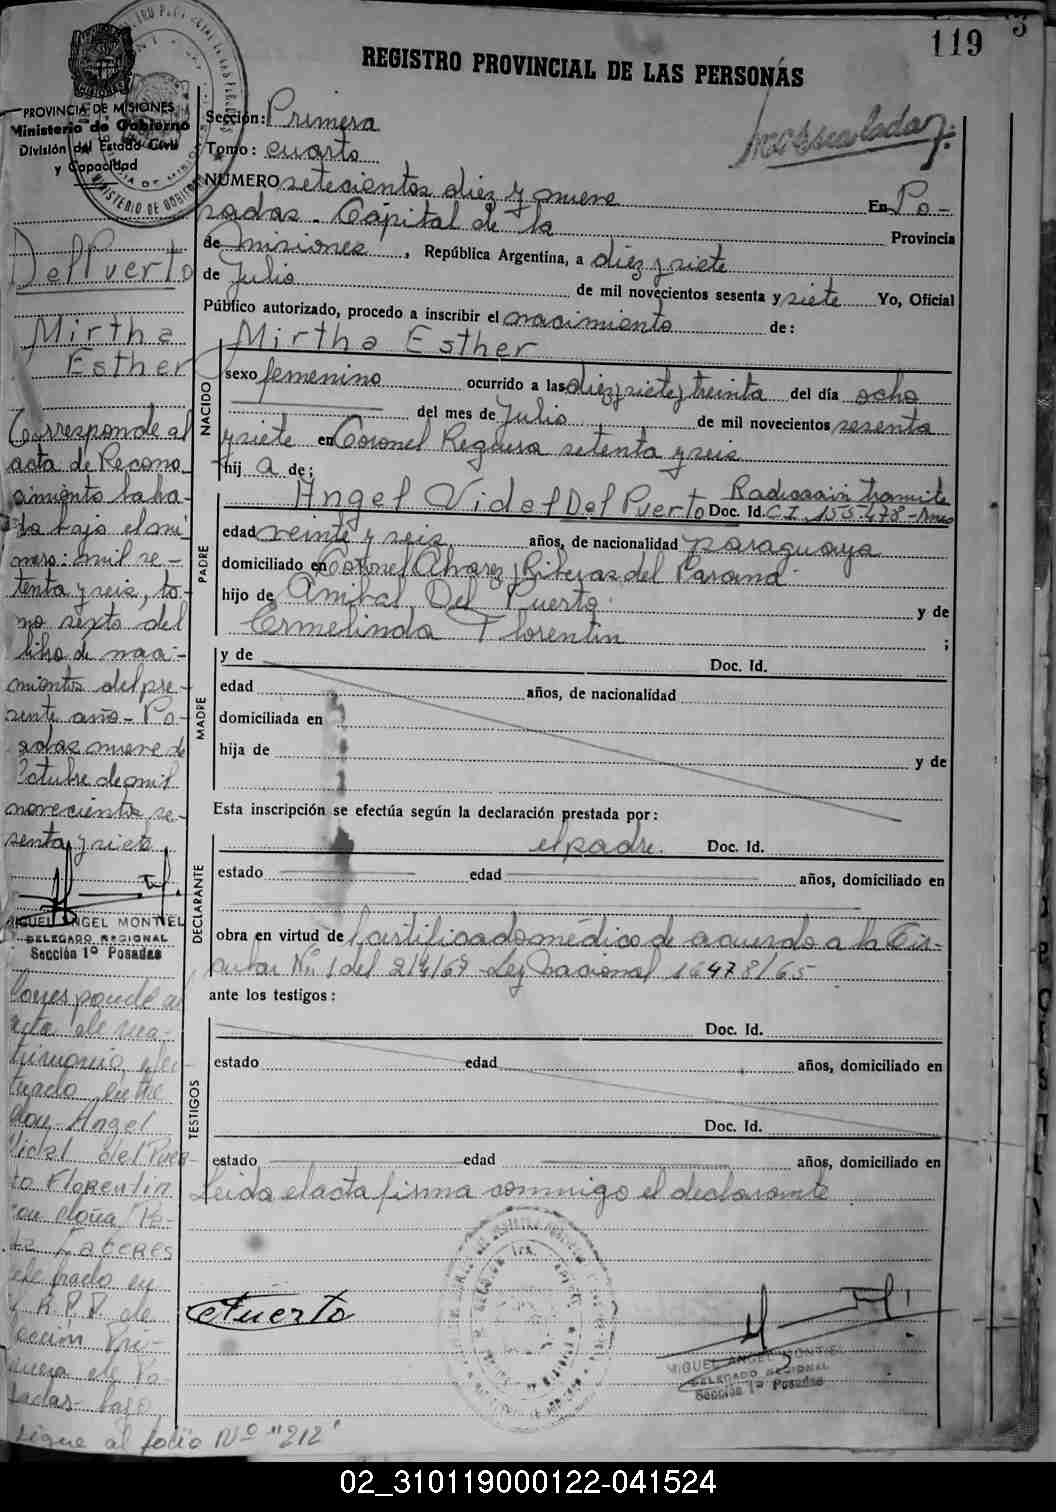 119
3
REGISTRO PROVINCIAL DE LAS PERSONAS
PROVINCIA DE MISIONES
Ministerio de Gobierno
División del Estado Civil
y Capacidad
Sección: Primera
Tomo: cuarto
NÚMERO setecientos diez y nueve En Po-
sadas - Capital de la Provincia
de misiones, República Argentina, a diez y siete
de Julio de mil novecientos sesenta y siete Yo, Oficial
Público autorizado, procedo a inscribir el nacimiento de:
NACIDO
Mirtha Esther
sexo femenino ocurrido a las diez y siete y treinta del día ocho
del mes de Julio de mil novecientos sesenta
y siete en Coronel Reguera setenta y seis
hij a de:
PADRE
Angel Vidal Del Puerto Radicación tramite
Doc. Id. C.I. 155.478-
edad veinte y seis años, de nacionalidad paraguaya
domiciliado en Coronel Alvarez y Riberas del Paraná
hijo de Anibal Del Puerto y de
Ermelinda Florentin ;
MADRE
y de Doc. Id.
edad años, de nacionalidad
domiciliada en
hija de y de
Esta inscripción se efectúa según la declaración prestada por:
DECLARANTE
el padre. Doc. Id.
estado edad años, domiciliado en
obra en virtud de certificado médico de acuerdo a la Cir-
cular No. 1 del 2/4/67 - Ley Nacional 16478/65
ante los testigos:
TESTIGOS
Doc. Id.
estado edad años, domiciliado en
Doc. Id.
estado edad años, domiciliado en
Leida el acta firma conmigo el declarante
MIGUEL ANGEL MONTIEL
DELEGADO REGIONAL
Sección 1º Posadas
Del Puerto
Mirtha
Esther
Corresponde al
acta de Recono-
cimiento labra-
da bajo el nú-
mero: mil se-
tenta y seis, to-
mo sexto del
libro de naci-
mientos del pre-
sente año - Po-
sadas nueve de
Octubre de mil
novecientos se-
senta y siete
MIGUEL ANGEL MONTIEL
DELEGADO REGIONAL
Sección 1º Posadas
Corresponde al
acta de ma-
trimonio efec-
tuado entre
don Angel
Vidal del Puer-
to Florentin
con doña
CACERES
celebrado en
R.P.P. de
Sección Pri-
mera de Po-
sadas - bajo
sigue al folio Nº "212"
02_310119000122-041524